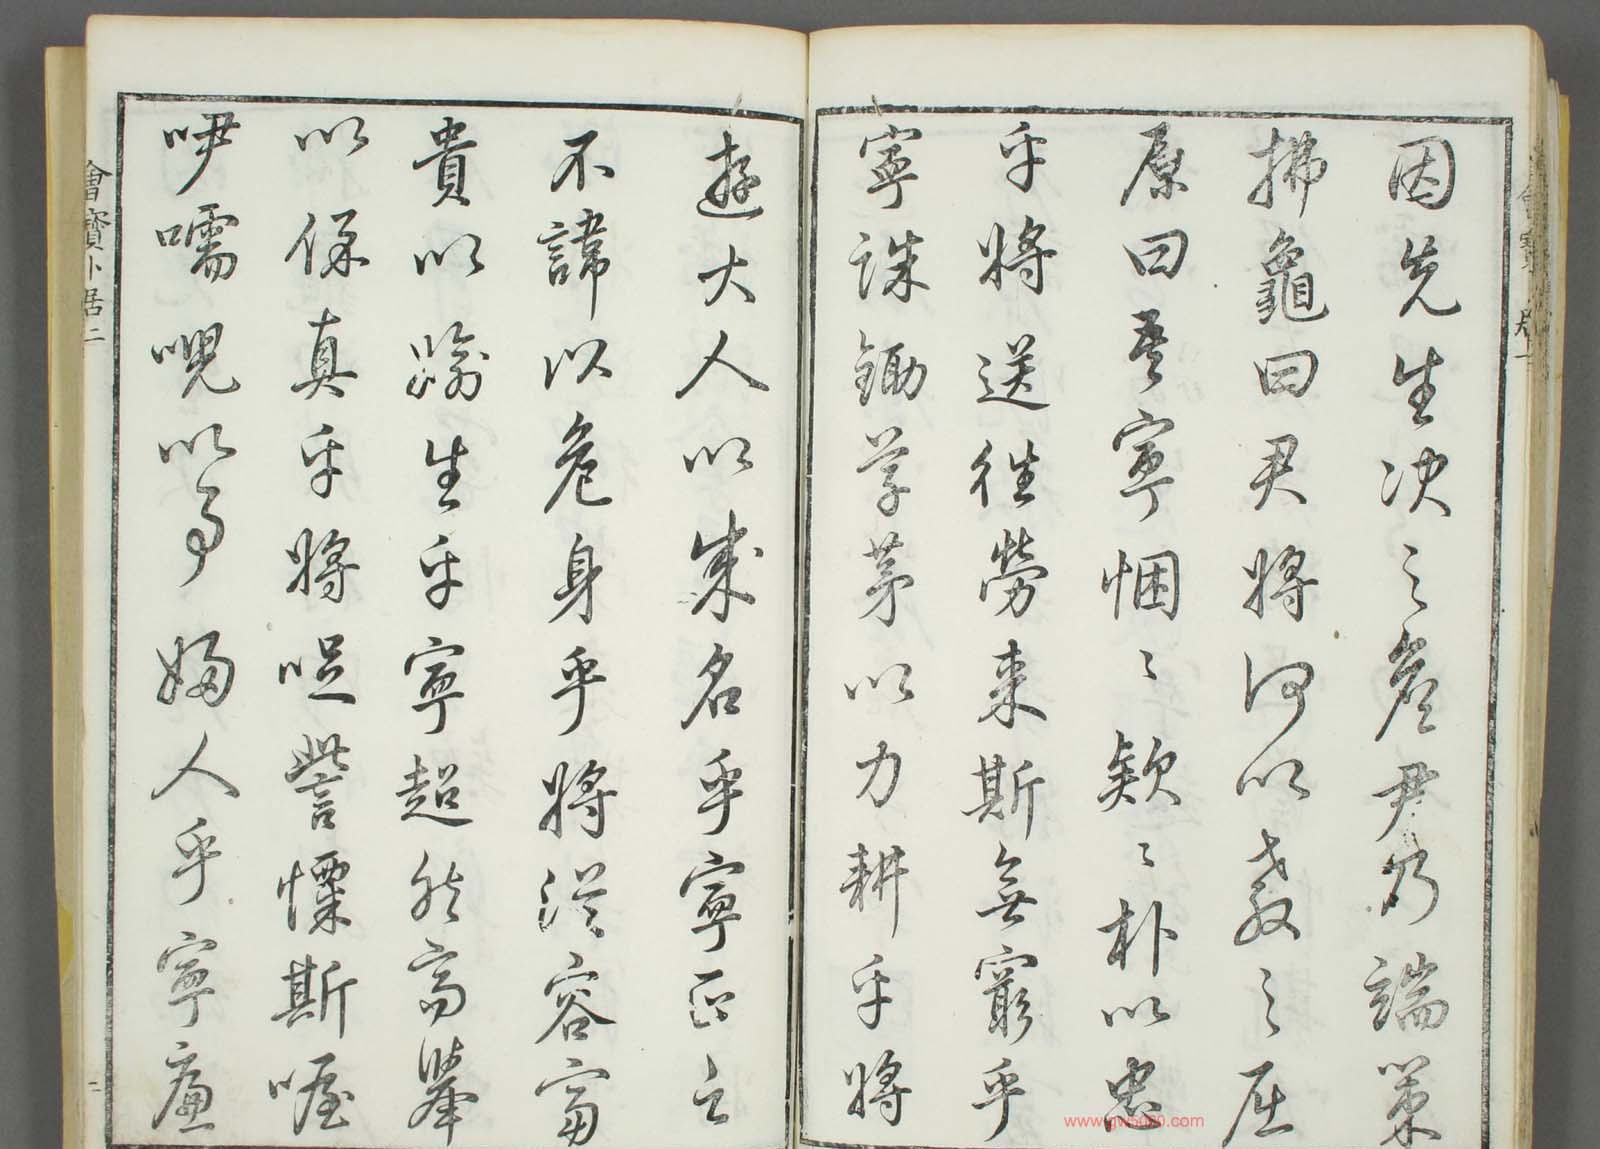 因先生决之詹尹乃端策
拂龜曰君將何以教之屈
原曰吾寧悃〻欵〻朴以忠
乎將送往勞來斯無窮乎
寧誅鋤草茅以力耕乎將
遊大人以成名乎寧正言
不諱以危身乎將從容富
貴以踰生乎寧超然高舉
以保真乎將哫訾慄斯喔
咿嚅唲以事婦人乎寧廉
會寶卜居二
二